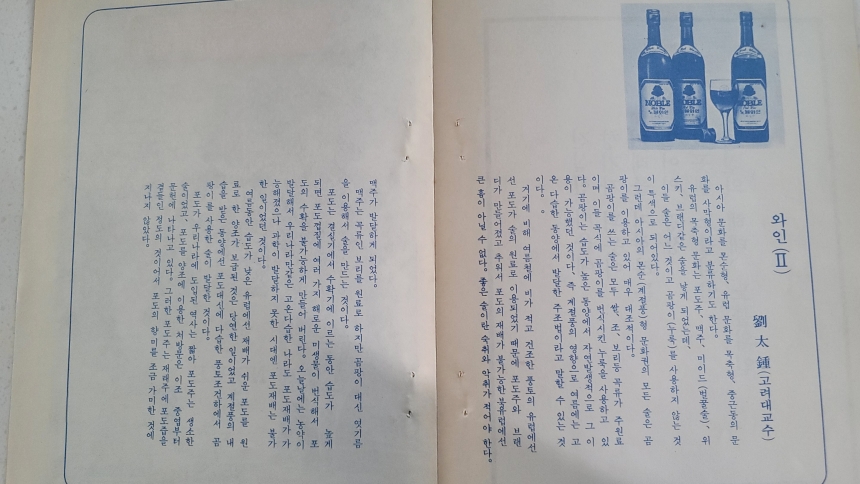 와인(Ⅱ)
劉太鍾(고려대교수)
아시아 문화를 몬순형, 유럽 문화를 목축형, 중근동의 문
화를 사막형이라고 분류하기도 한다.
유럽의 목축형 문화는 포도주, 맥주, 미이드(벌꿀술), 위
스키, 브랜디같은 술을 낳게 되었는데,
이들 술은 어느 것이고 곰팡이(누룩)를 사용하지 않는 것
이 특색으로 되어있다.
그런데 아시아의 몬순(계절풍)형 문화권의 모든 술은 곰
팡이를 이용하고 있어 매우 대조적이다.
곰팡이를 쓰는 술은 모두 쌀, 조, 보리등 곡류가 주원료
이며 이들 곡식에 곰팡이를 번식시킨 누룩을 사용하고 있
다. 곰팡이는 습도가 높은 동양에서 자연발생적으로 그 이
용이 가능했던 것이다. 즉 계절풍의 영향으로 여름에는 고
온 다습한 동양에서 발달한 주조법이라고 말할 수 있는 것
이다.
거기에 비해 여름철에 비가 적고 건조한 풍토의 유럽에선
선 포도가 술의 원료로 이용되었기 때문에 포도주와 브랜
디가 만들어졌고 추워서 포도의 재배가 불가능한 북유럽에선
큰 흠이 아닐 수 없다. 좋은 술이란 숙취와 악취가 적어야 한다.
맥주가 발달하게 되었다.
맥주는 곡류인 보리를 원료로 하지만 곰팡이 대신 엿기름
을 이용해서 술을 만드는 것이다.
포도는 결실기에서 수확기에 이르는 동안 습도가 높게
되면 포도껍질에 여러 가지 해로운 미생물이 번식해서 포
도의 수확을 불가능하게 만들어 버린다. 오늘날에는 농약이
발달해서 우리나라만같은 고온다습한 나라도 포도재배가 가
능해졌으나 과학이 발달하지 못한 시대엔 포도재배는 불가
한 일이었던 것이다.
여름동안 습도가 낮은 유럽에선 재배가 쉬운 포도를 원
료로 한 양조가 보급된 것은 당연한 일이었고 계절풍의 내
습을 받는 동양에선 포도대신에 다습한 풍토조건하에서 곰
팡이를 사용한 술이 발달한 것이다.
포도가 우리나라에 도입된 역사는 짧아 포도주는 생소한
술이었고, 포도를 양조에 이용한 처방문은 이조 중엽부터
문헌에 나타나고 있다. 그러한 포도주는 재래주에 포도즙을
곁들인 정도의 것이어서 포도의 향미를 조금 가미한 것에
지나지 않았다.
NOBLE
노블와인
NOBLE
NOBLE
노블와인